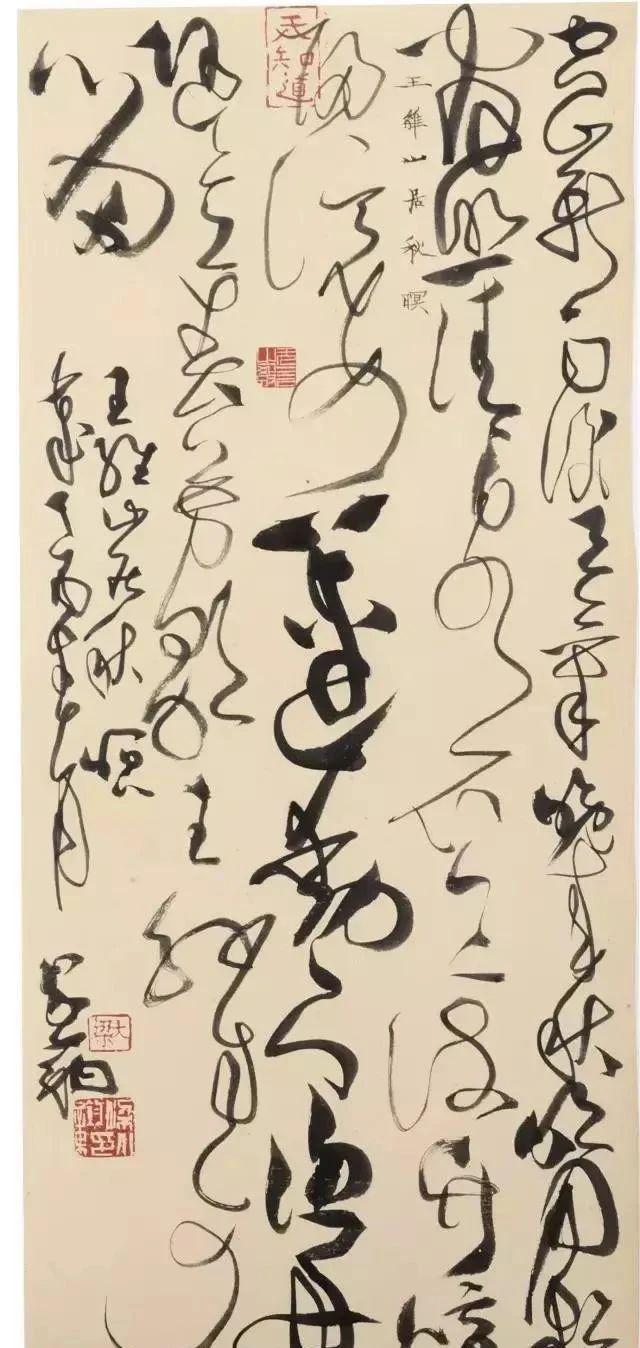 空山新雨後天氣晚來秋明月松
間照清泉石上流竹喧
王維山居秋暝
歸浣女蓮動下漁舟
隨意春芳歇王孫自可
留
王維山居秋暝